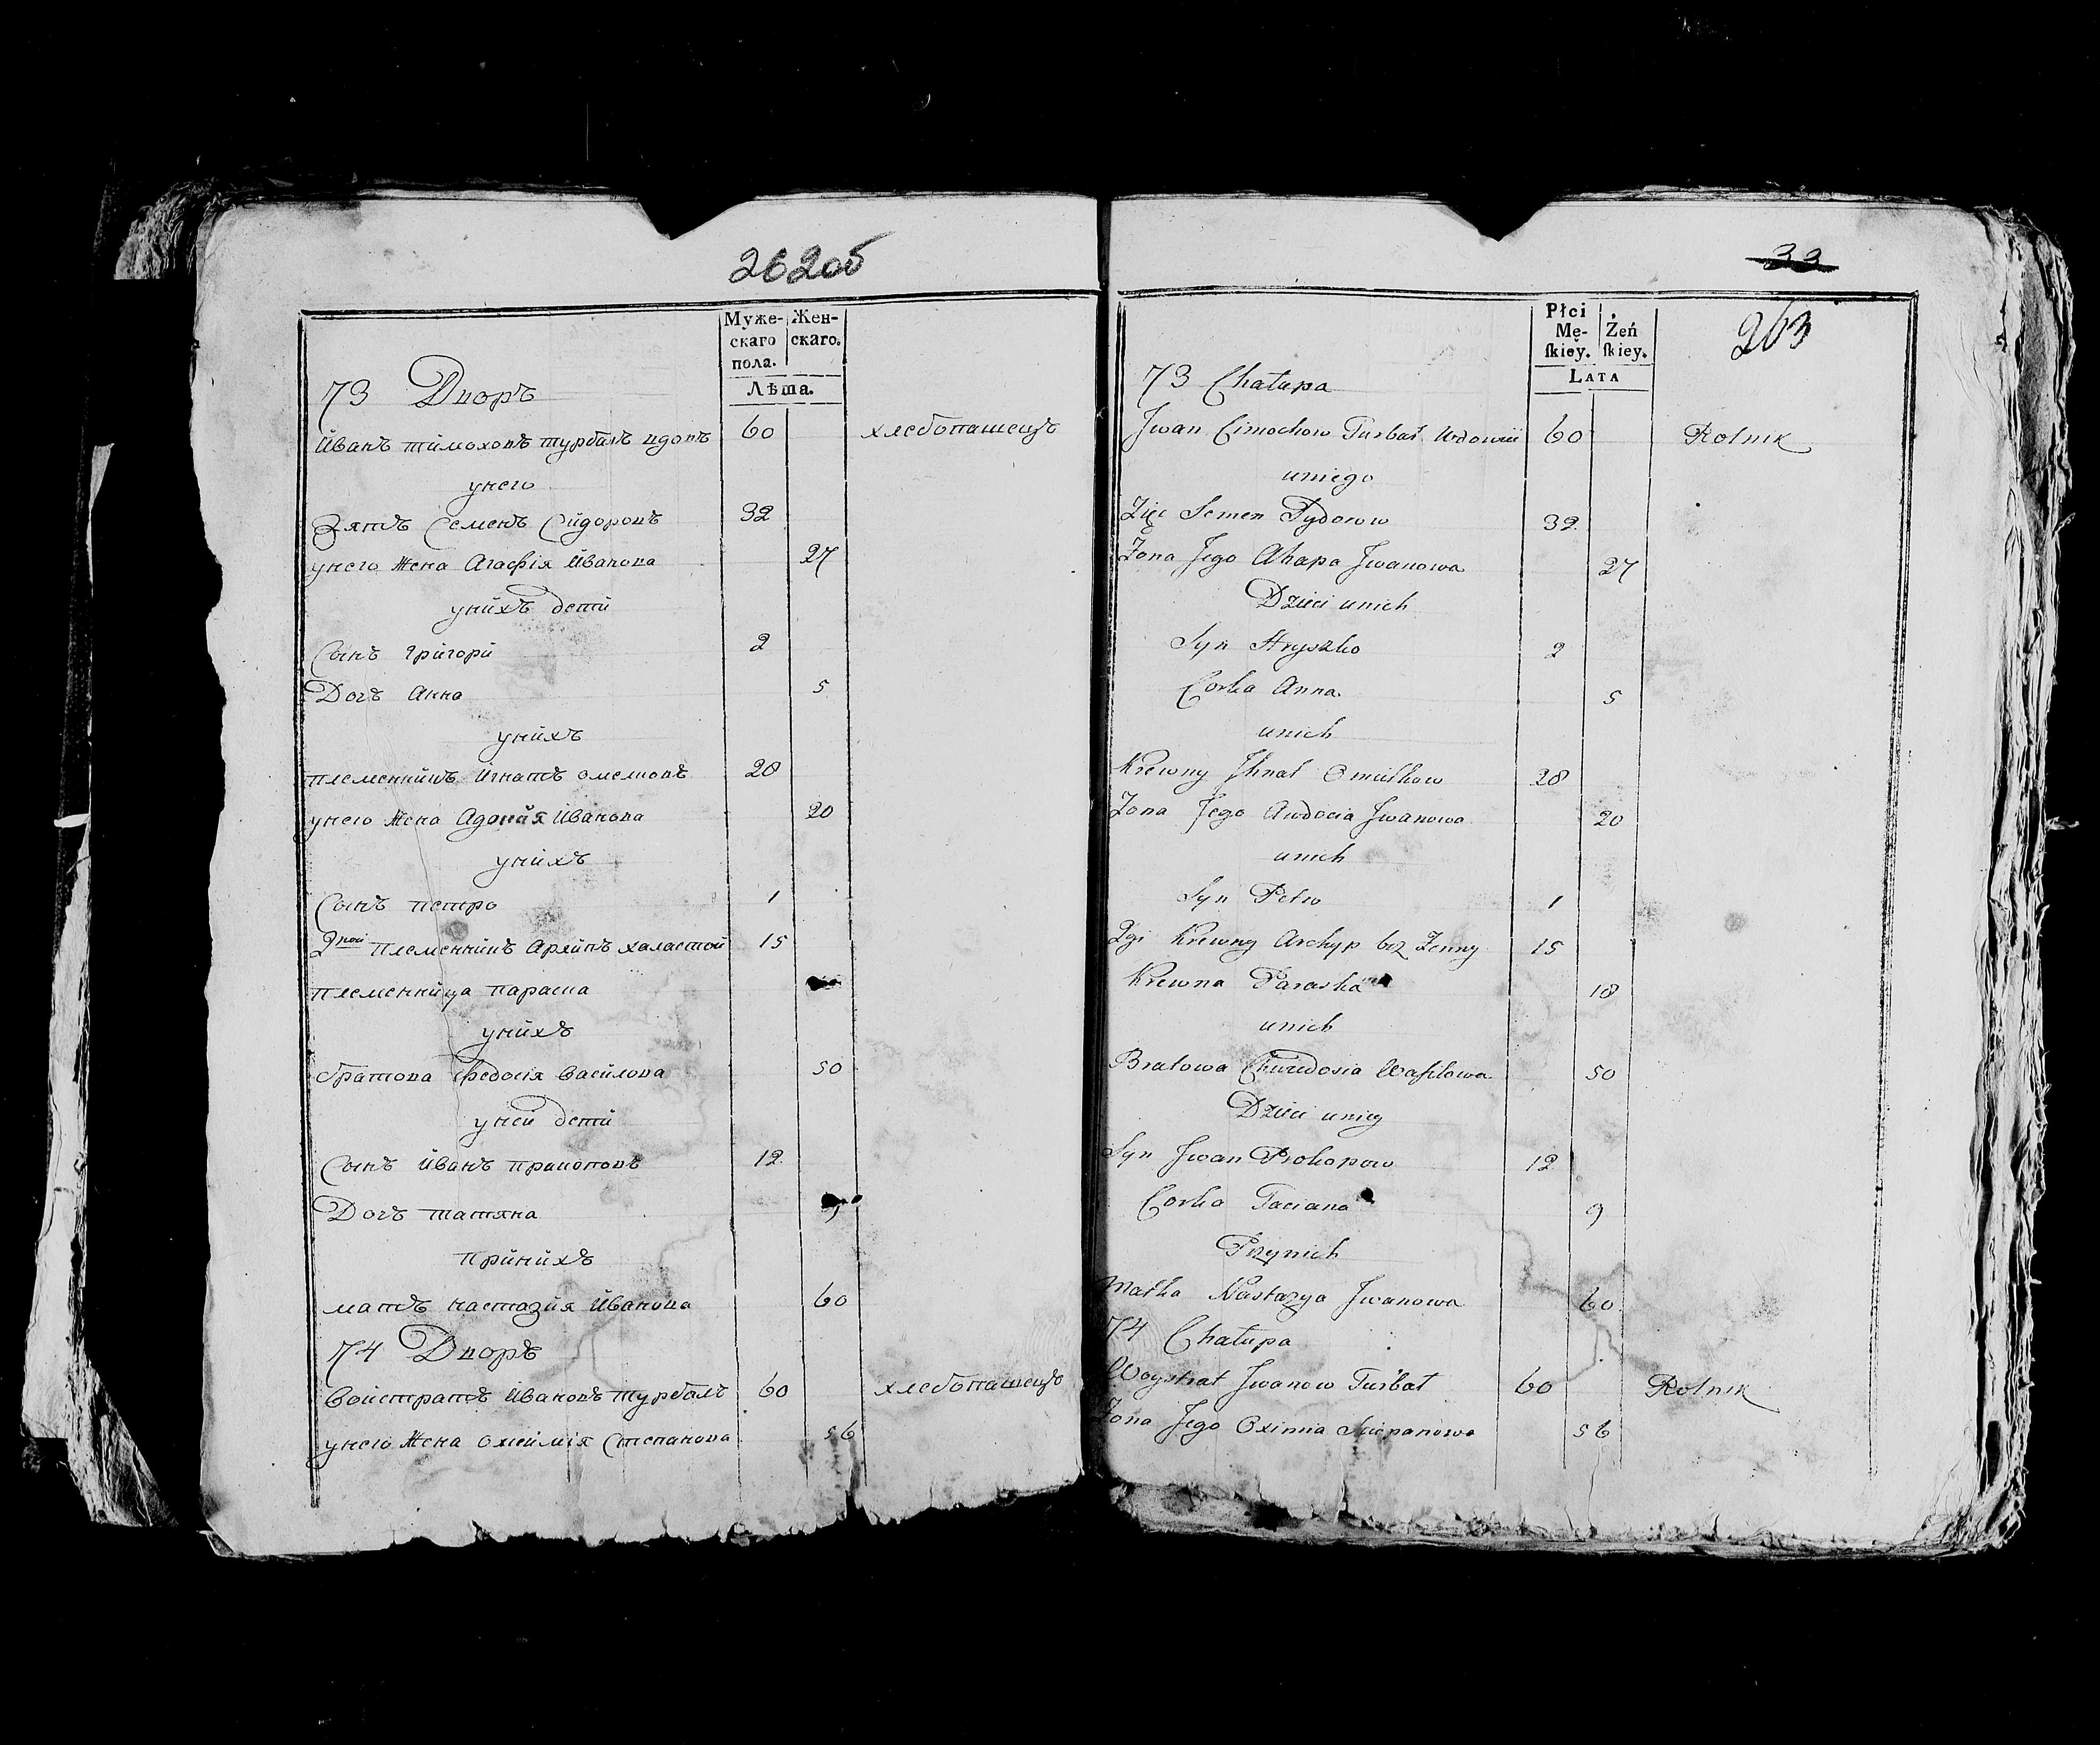 262об
Муже- Жен-
скаго скаго.
пола.
Лѣта.
73 Дворъ
Иванъ тимоховъ турбалъ вдовъ 60 хлебопашецъ
унего
Зять Семенъ Сидоровъ 32
унего жена Агафія Иванова 27
унихъ дети
Сынъ григори 2
Дочъ Анна 5
унихъ
племенникъ Игнатъ омелковъ 28
унего жена Адокия Иванова 20
унихъ
Сынъ петро 1
2гой племенникъ Архипъ халастой 15
племенница параска
унихъ
братова федосія василова 50
уней дети
Сынъ иванъ пракоповъ 12
Дочъ татяна 9
принихъ
мать настазия Иванова 60
74 Дворъ
Войстратъ Ивановъ турбалъ 60 хлебопашецъ
унего жена охиимія Степанова 56
33
263
Płci
Mę- Żeń
ſkiey. ſkiey.
LATA
73 Chałupa
Jwan Cimochow Turbał Wdowiec 60 Rolnik
uniego
Zięć Semen Sydorow 32
Żona Jego Ahapa Jwanowa 27
Dzieci unich
Syn Hryszko 2
Corka Anna 5
unich
Krewny Jhnat Omiełkow 28
Żona Jego Audocia Jwanowa 20
unich
Syn Petro 1
2gi Krewny Archyp bez Żenny 15
Krewna Paraska 18
unich
Bratowa Chwiedosia Waſilowa 50
Dzieci uniey
Syn Jwan Prokopow 12
Corka Taciana 9
Przynich
Matka Nastazya Jwanowa 60
74 Chałupa
Woystrat Jwanow Turbał 60 Rolnik
Żona Jego Oximia Sciepanowa 56